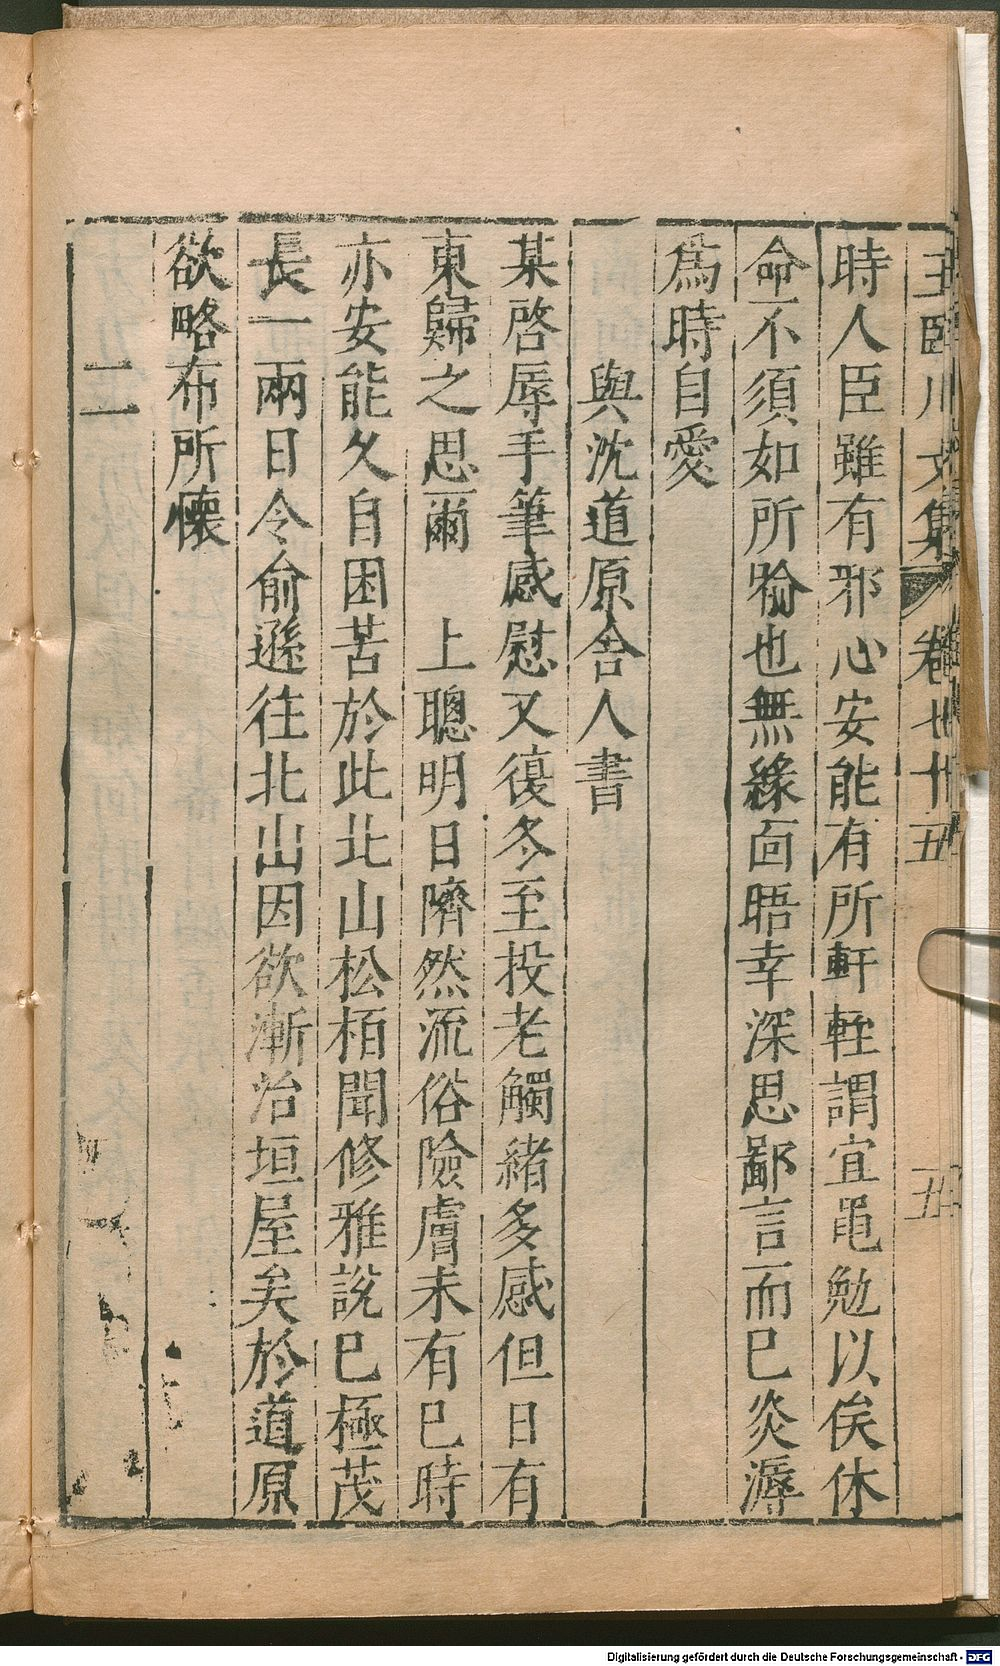 王臨川文集 卷七十五 五
時人臣雖有邪心安能有所軒輊謂宜黽勉以俟休
命不須如所諭也無緣面晤幸深思鄙言而已炎溽
爲時自愛
與沈道原舍人書
某啓辱手筆感慰又復冬至投老觸緒多感但日有
東歸之思爾 上聰明日隮然流俗險膚未有已時
亦安能久自困苦於此北山松栢聞修雅説已極茂
長一兩日令俞遜往北山因欲漸治垣屋矣於道原
欲略布所懷
二
Digitalisierung gefördert durch die Deutsche Forschungsgemeinschaft - DFG